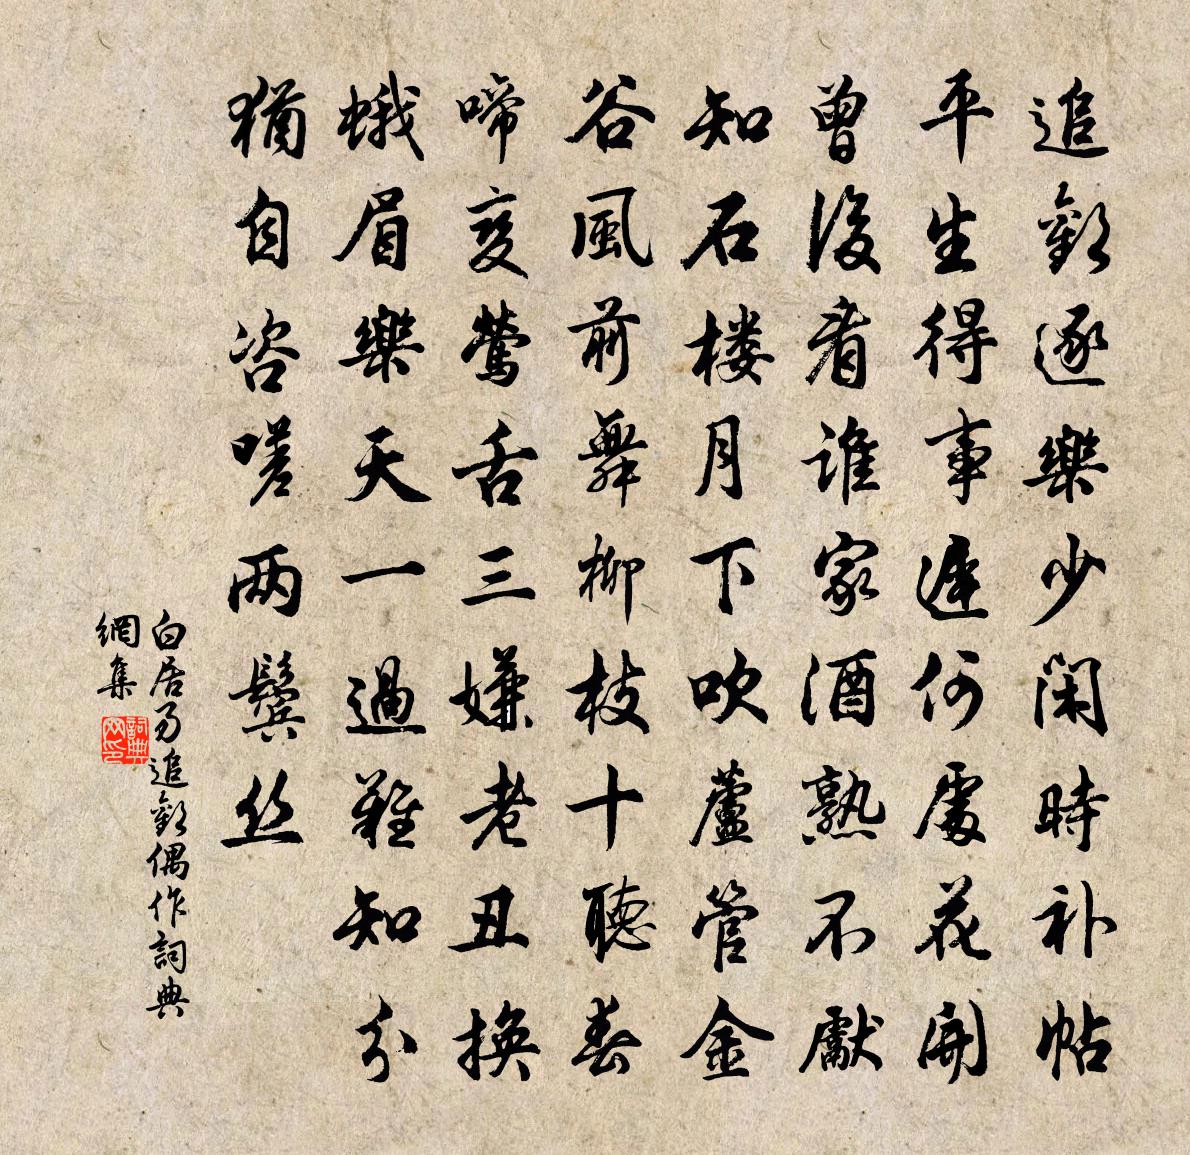 追歡逐樂少閑時补帖
平生得事遲何處花開
曾後看誰家酒熟不獻
知石楼月下吹蘆管金
谷風前舞柳枝十聽春
啼变鶯舌三嫌老丑換
蛾眉樂天一過難知分
猶自咨嗟两鬢丝
白居易追歡偶作詞典
網集
詞典
网印